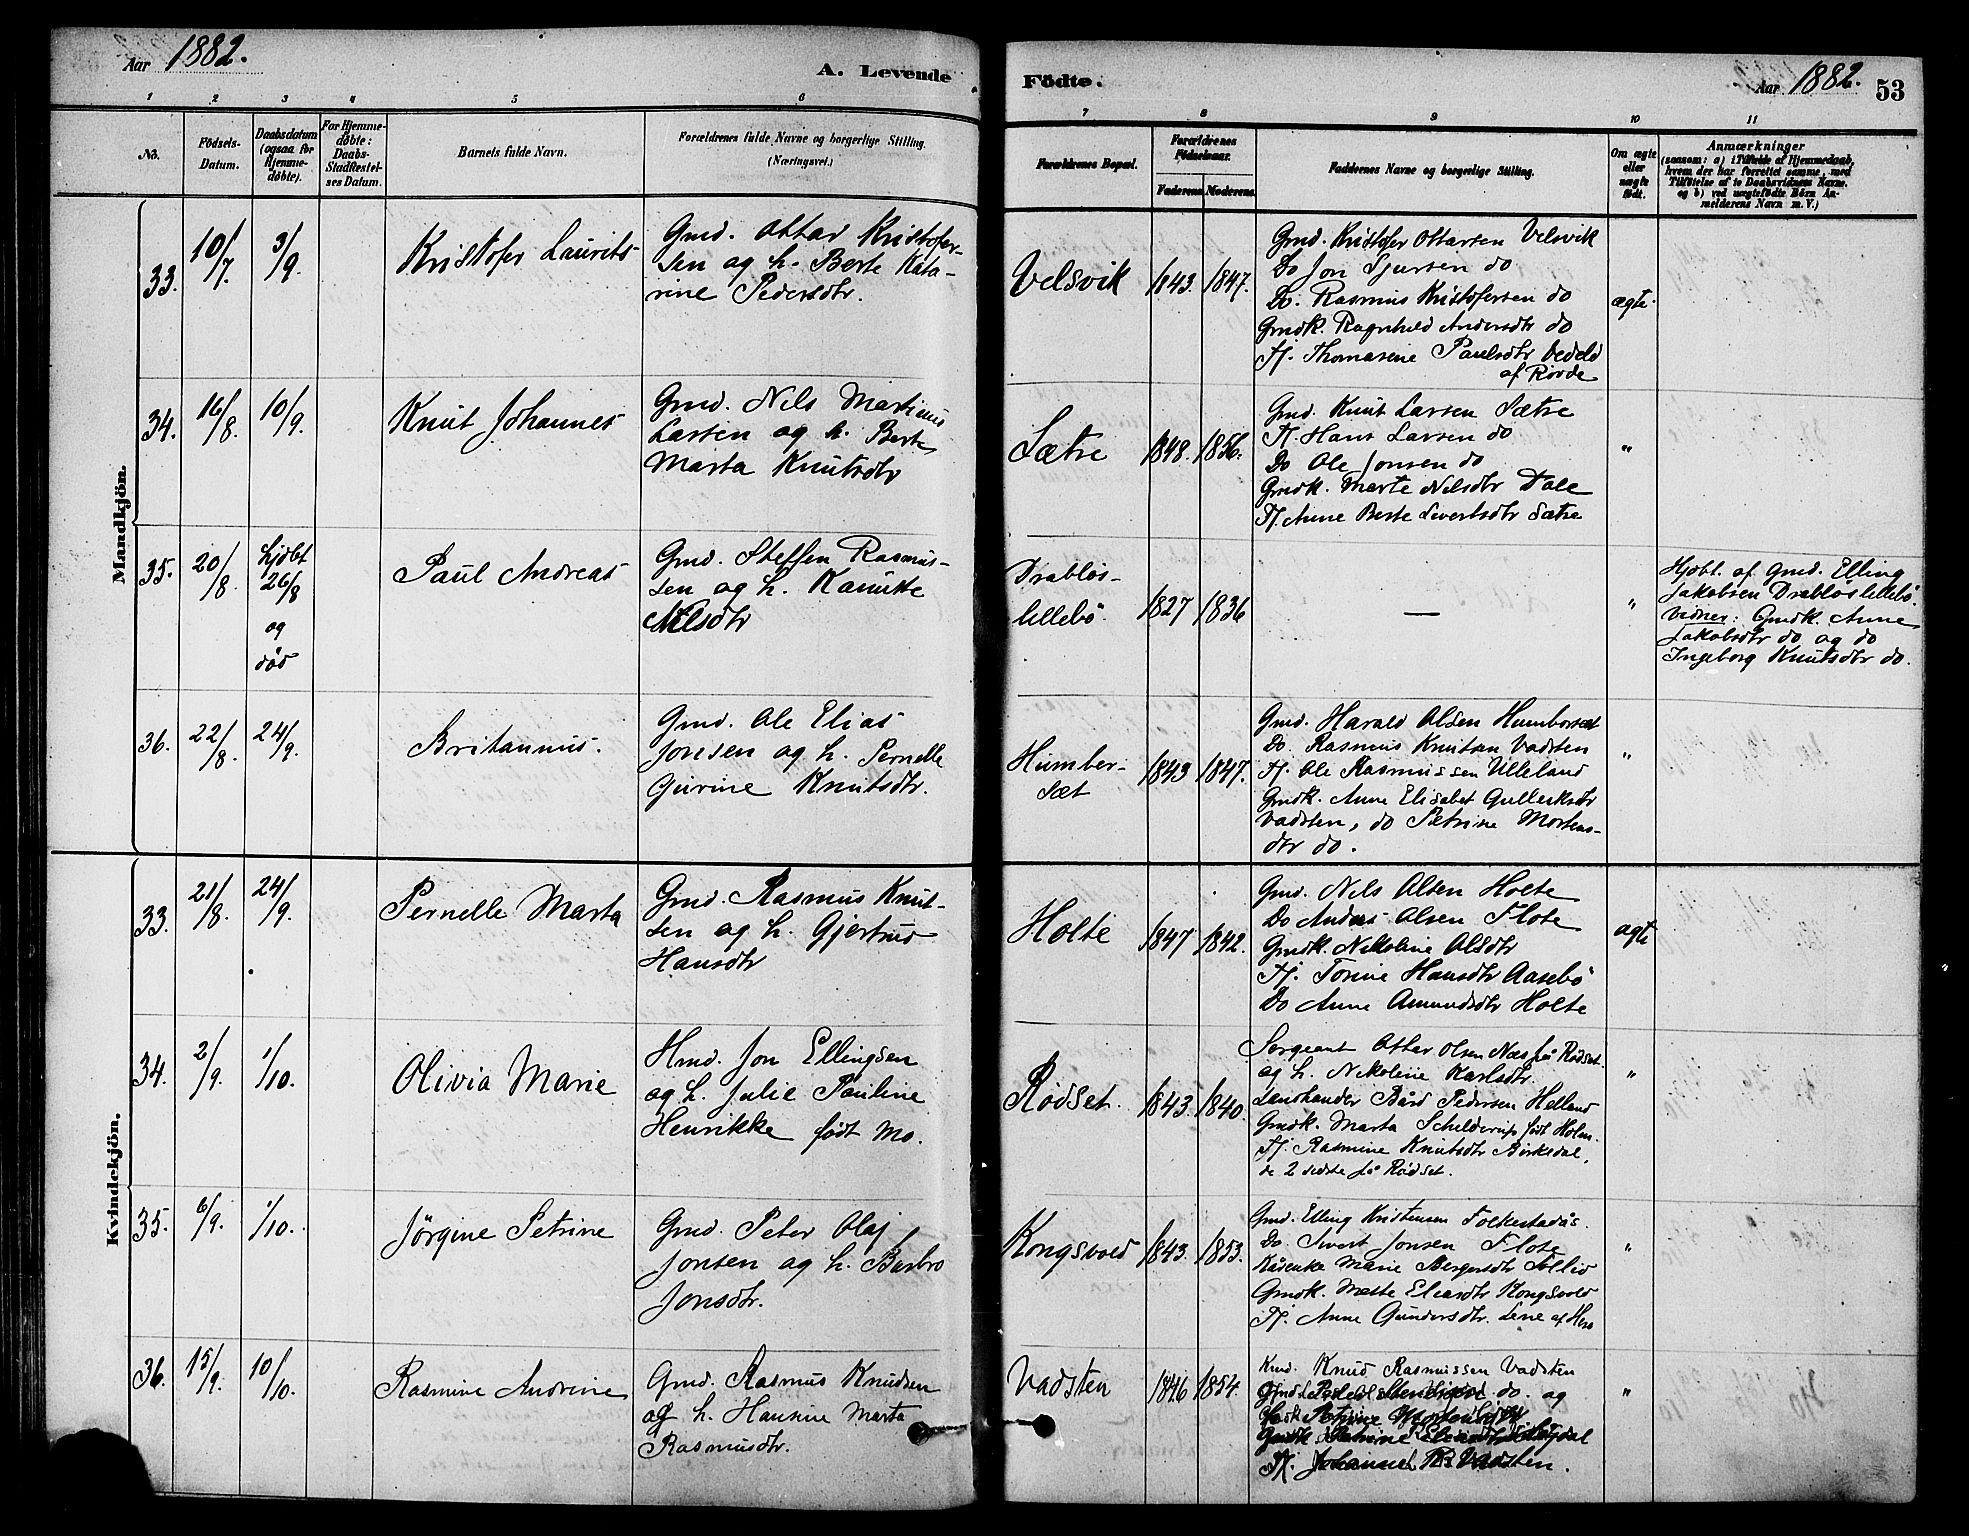 Aar 1882.
A. Levende
Födte.
Aar 1882.
53
1 2 3 4 5 6
7 8 9 10 11
No.
Födsels-
Datum.
Daabsdatum
(ogsaa for
Hjemme-
döbte).
For Hjemme-
döbte:
Daabs-
Stadfæstel-
ses Datum.
Barnets fulde Navn.
Forældrenes fulde Navne og borgerlige Stilling.
(Næringsvei.)
Forældrenes Bopæl.
Forældrenes
Födselsaar.
Faderens. Moderens.
Faddernes Navne og borgerlige Stilling.
Om ægte
eller
uægte
födt.
Anmærkninger
(saasom: a) i Tilfælde af Hjemmedaab,
hvem der har forrettet samme, med
Tilföielse af to Daabsvidners Navne.
og b) ved uægtefödte Börn An-
melderens Navn m. V.)
Mandkjön.
33. 10/7. 3/9. Kristofer Laurits
Gmd. Ottar Kristofer-
sen og h. Berte Kata-
rine Pedersdtr.
Velsvik 1843. 1847.
Gmd. Kristofer Ottarsen Velsvik
Do Jon Sjursen do
Do. Rasmus Kristofersen do
Gmdk. Ragnhild Andersdtr do
Tj. Thomasine Paulsdtr Vedeld
af Rovde
ægte.
34. 16/8. 10/9. Knut Johannes
Gmd. Nils Martinus
Larsen og h. Berte
Marta Knutsdtr
Sætre 1848. 1856.
Gmd. Knut Larsen Sætre
Tj. Hans Larsen do
Do Ole Jonsen do
Gmdk. Marte Nilsdtr Dale
Tj. Anne Berte Sivertsdtr Sætre
"
35. 20/8. hjdbt
26/8
og
död
Paul Andreas
Gmd. Steffen Rasmus-
sen og h. Kanutte
Nilsdtr
Drabløs-
lillebö 1827 1836
—
"
Hjobt. af Gmd. Elling
Jakobsen Drabløslillebö.
Vidner: Gmdk. Anne
Jakobsdtr do og do
Ingeborg Knutsdtr do.
36. 22/8. 24/9. Britannus.
Gmd. Ole Elias
Jonsen og h. Pernelle
Gurine Knutsdtr.
Humber-
sæt 1843 1847.
Gmd. Harald Olsen Humborsæt
Do. Rasmus Knutsen Vadsten
Tj. Ole Rasmussen Ulleland
Gmdk. Anne Elisabet Gulleiksdtr
Vadsten, do Petrine Mortens-
dtr do.
"
Kvindekjön.
33. 21/8. 24/9. Pernelle Marta
Gmd. Rasmus Knut-
sen og h. Gjertrud
Hansdtr
Holte 1847 1842.
Gmd. Nils Olsen Holte
Do Anders Olsen Flote
Gmdk. Nikoline Olsdtr
Tj. Torine Hansdtr Aasebö
Do Anne Amundsdtr Holte
ægte
34. 2/9. 1/10. Olivia Marie
Hmd. Jon Ellingsen
og h. Julie Pauline
Henrikke födt Mo.
Rödset. 1843. 1840.
Sergeant Ottar Olsen Næs på Rödset.
og h. Nikoline Karlsdtr.
Landhandler Bård Pedersen Helland
Gmdk. Marta Schelderup födt Holm.
Tj. Rasmine Knutsdtr Birkedal,
de 2 sidste på Rödset.
"
35. 6/9. 1/10. Jörgine Petrine
Gmd. Peter Olaj
Jonsen og h. Barbro
Jonsdtr.
Kongsvold 1843. 1853.
Gmd. Elling Kristensen Folkestadås.
Do. Sivert Jonsen Flote
Kårenke Marie Bergersdtr Follid
Gmdk. Mette Eliasdtr Kongsvold
Tj. Anne Gundersdtr. Lene af Herö
"
36. 15/9. 10/10. Rasmine Andrine
Gmd. Rasmus Knudsen
og h. Hansine Marta
Rasmusdtr.
Vadsten 1846 1854.
Kmd. Knud Rasmussen Vadsten
do. og
Gmdk
Tj. Johannes Vadsten.
"